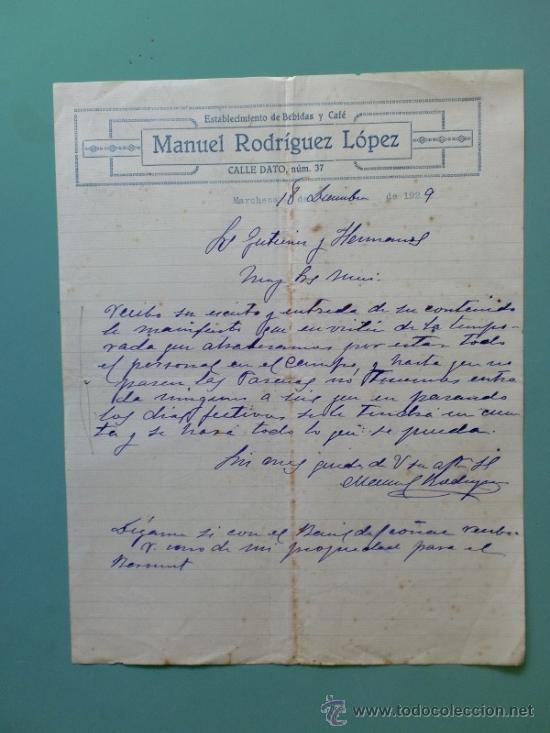 Establecimiento de Bebidas y Café
Manuel Rodríguez López
CALLE DATO, núm. 37
Marchena 18 de Diciembre de 1929
Sres Gutierrez y Hermanos
Muy Sres mios:
recibo su escrito y entrada de su contenido
le manifiesto que en virtud de la tempo-
rada que atrabesamos por estar todo
el personal en el campo, y hasta que no
pasen las Pascuas no tenemos entra
da ninguna a sies que en pasando
los dias festivos se le tendrá en cuen
ta y se hará todo lo que se pueda.
Sin mas queda de V su
Manuel Rodriguez
Digame si con el Barril de Coñac recibio
V. uno de mi propiedad para el
Bermut
www.todocoleccion.net